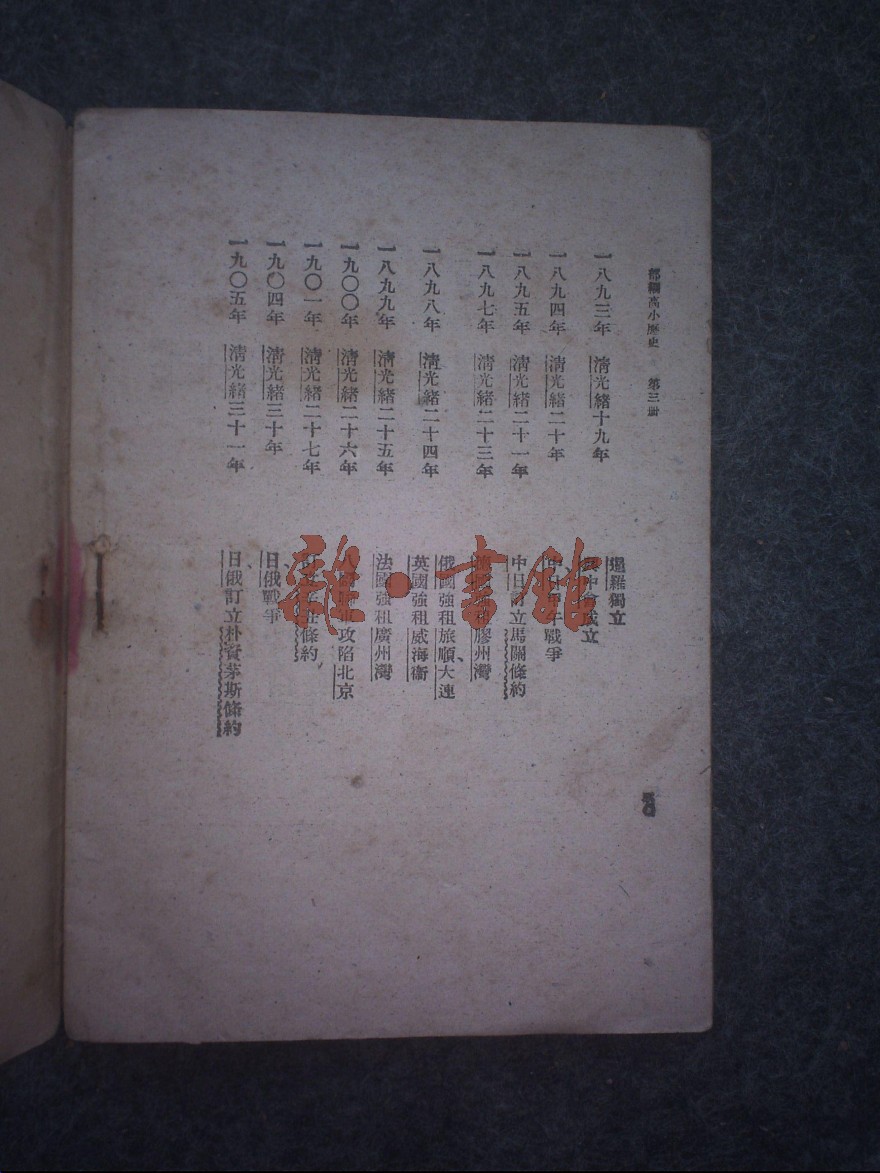 部編高小歷史 第三册
一八九三年 清光緒十九年 暹羅獨立
中會成立
一八九四年 清光緒二十年 戰爭
一八九五年 清光緒二十一年 中日訂立馬關條約
一八九七年 清光緒二十三年 膠州灣
一八九八年 清光緒二十四年 俄國強租旅順、大連
英國強租威海衞
一八九九年 清光緒二十五年 法國強租廣州灣
一九〇〇年 清光緒二十六年 攻陷北京
一九〇一年 清光緒二十七年 條約
一九〇四年 清光緒三十年 日、俄戰爭
一九〇五年 清光緒三十一年 日、俄訂立朴資茅斯條約
雜·書館